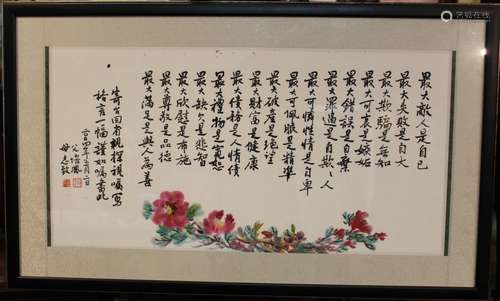 最大敵人是自己
最大失敗是自大
最大欺騙是無知
最大可哀是嫉妬
最大錯誤是自棄
最大罪過是自欺々人
最大可憐性情是自卑
最大可佩服是精準
最大破產是绝望
最大財富是健康
最大債務是人情債
最大禮物是寬恕
最大缺欠是悲智
最大欣慰是布施
最大尊敬是品德
最大滿足是與人為善
回省親探視囑寫
格言一幅謹如囑書此
四年 月二日
父
母
在线